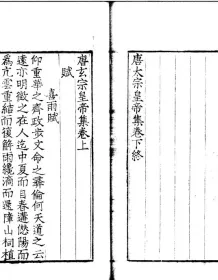 唐太宗皇帝集卷下終
唐玄宗皇帝集卷上
賦
喜雨賦
仰重華之齊政步文命之彝倫何天道之云
遠亦明徵之在人迄中夏而自春遘愆陽而
為亢雲重結而復解雨纔滴而還障山祠植